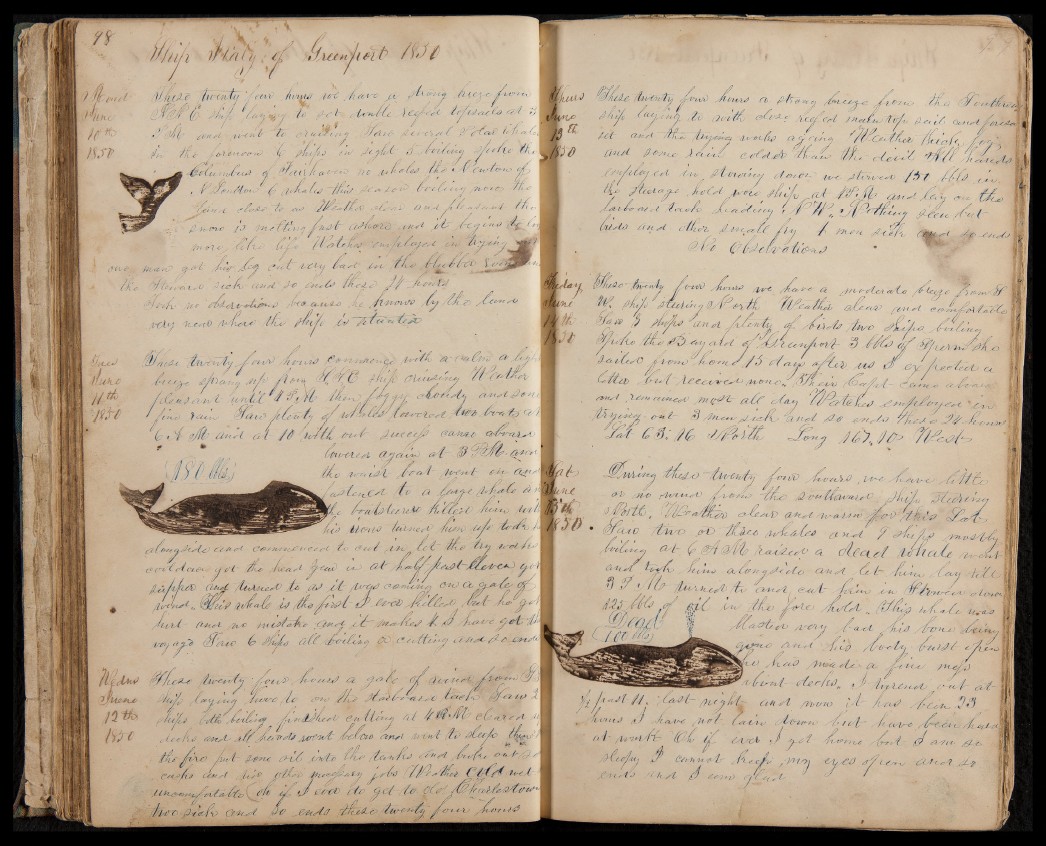 98
Ship Mary of Greenport 1850
June
10th
1850
These twenty four hours we have a strong breeze from
ship laying to set double reefed topsails at 3
P M and went to cruising Saw several whales
in the forenoon 6 ships in sight 3 boiling spoke the
Columbus of Fairhaven no whales the Newton of
N London 6 whales this season boiling now the
close to us Weather clear and pleasant the
snow is melting fast ashore and it begins to
more like life Watches employed in trying
one man got his leg cut very bad in the blubber room
the Steward sick and so ends these 24 hours
Took no observations because he knows by the land
very near where the ship is situated
June
11th
1850
These twenty four hours commences with a calm a light
breeze sprang up from ship cruising Weather
pleasant until 4 P.M then foggy cloudy and some
fine rain Saw plenty of whales lowered two boats at
6 A M and at 10 with out success came aboard
lowered again at 3 P.M. and
180 bbls
the waist boat went on and
fastened to a large whale and
the boatsteerer killed him with
his irons turned him up took
alongside and commenced to cut in, let the try works
couldn't get the head gear in at half past eleven got
supper and turned to as it was coming on a gale of
wind. This whale is the first I ever killed, but he got
hurt and no mistake and it makes I have got
voyage Saw 6 ships all boiling or cutting and so ends
Wedns
June
12th
1850
These twenty four hours a gale of wind from
ship laying hove to on the starboard tack Saw 2
ships both boiling finished cutting at 4 P.M cleared up
decks and all hands went below and went to sleep
the fire put some oil into the tanks and broke out
casks and did other necessary jobs Weather cold wet
uncomfortable oh if I ever do get to old Charlestown
two sick and so ends these twenty four hours
Thurs
June
13th
1850
These twenty four hours a strong breeze from the Southern
ship laying to with close reefed main top sail and foresail
set and the trying works agoing Weather
and some rain colder than the devil All hands
employed in stowing down we stowed 131 bbls in
the steerage hold wore ship at 1 P.M and lay on the
larboard tack heading N W. Nothing seen but
birds and other small fry 1 man sick and so ends
No Observations
Friday
June
14th
1850
These twenty four hours we have a moderate breeze from S
W. ship steering North Weather clear and comfortable
Saw 3 ships and plenty of birds two ships boiling
Spoke the Bayard of Greenport 3 bbls of Sperm she
sailed from home 15 days after us I expected a
letter but received none. Their Capt came aboard
and remained most all day Watches employed in
trying out 3 men sick and so ends these 24 hours
Lat 65.16 North Long 167.10 West
Sat
June
15th
1850.
During these twenty four hours we have little
or no wind from the southward ship steering
North. Weather clear and warm for this Lat
Saw two or three whales and 9 ships mostly
boiling at 6 A M raised a dead whale went
and took him alongside and let him lay till
3 P.M turned to and cut him in Stowed down
123 bbls of oil in the fore hold. This whale was
Dead
100 bbls
blasted very bad his bone being
gone and his body burst open
he has made a fine mess
about decks. I turned out at
½ past 11. last night and now it has been 23
hours I have not lain down but have been hard
at work Oh if ever I get home but I am so
sleepy I cannot keep my eyes open and so
ends and I am glad